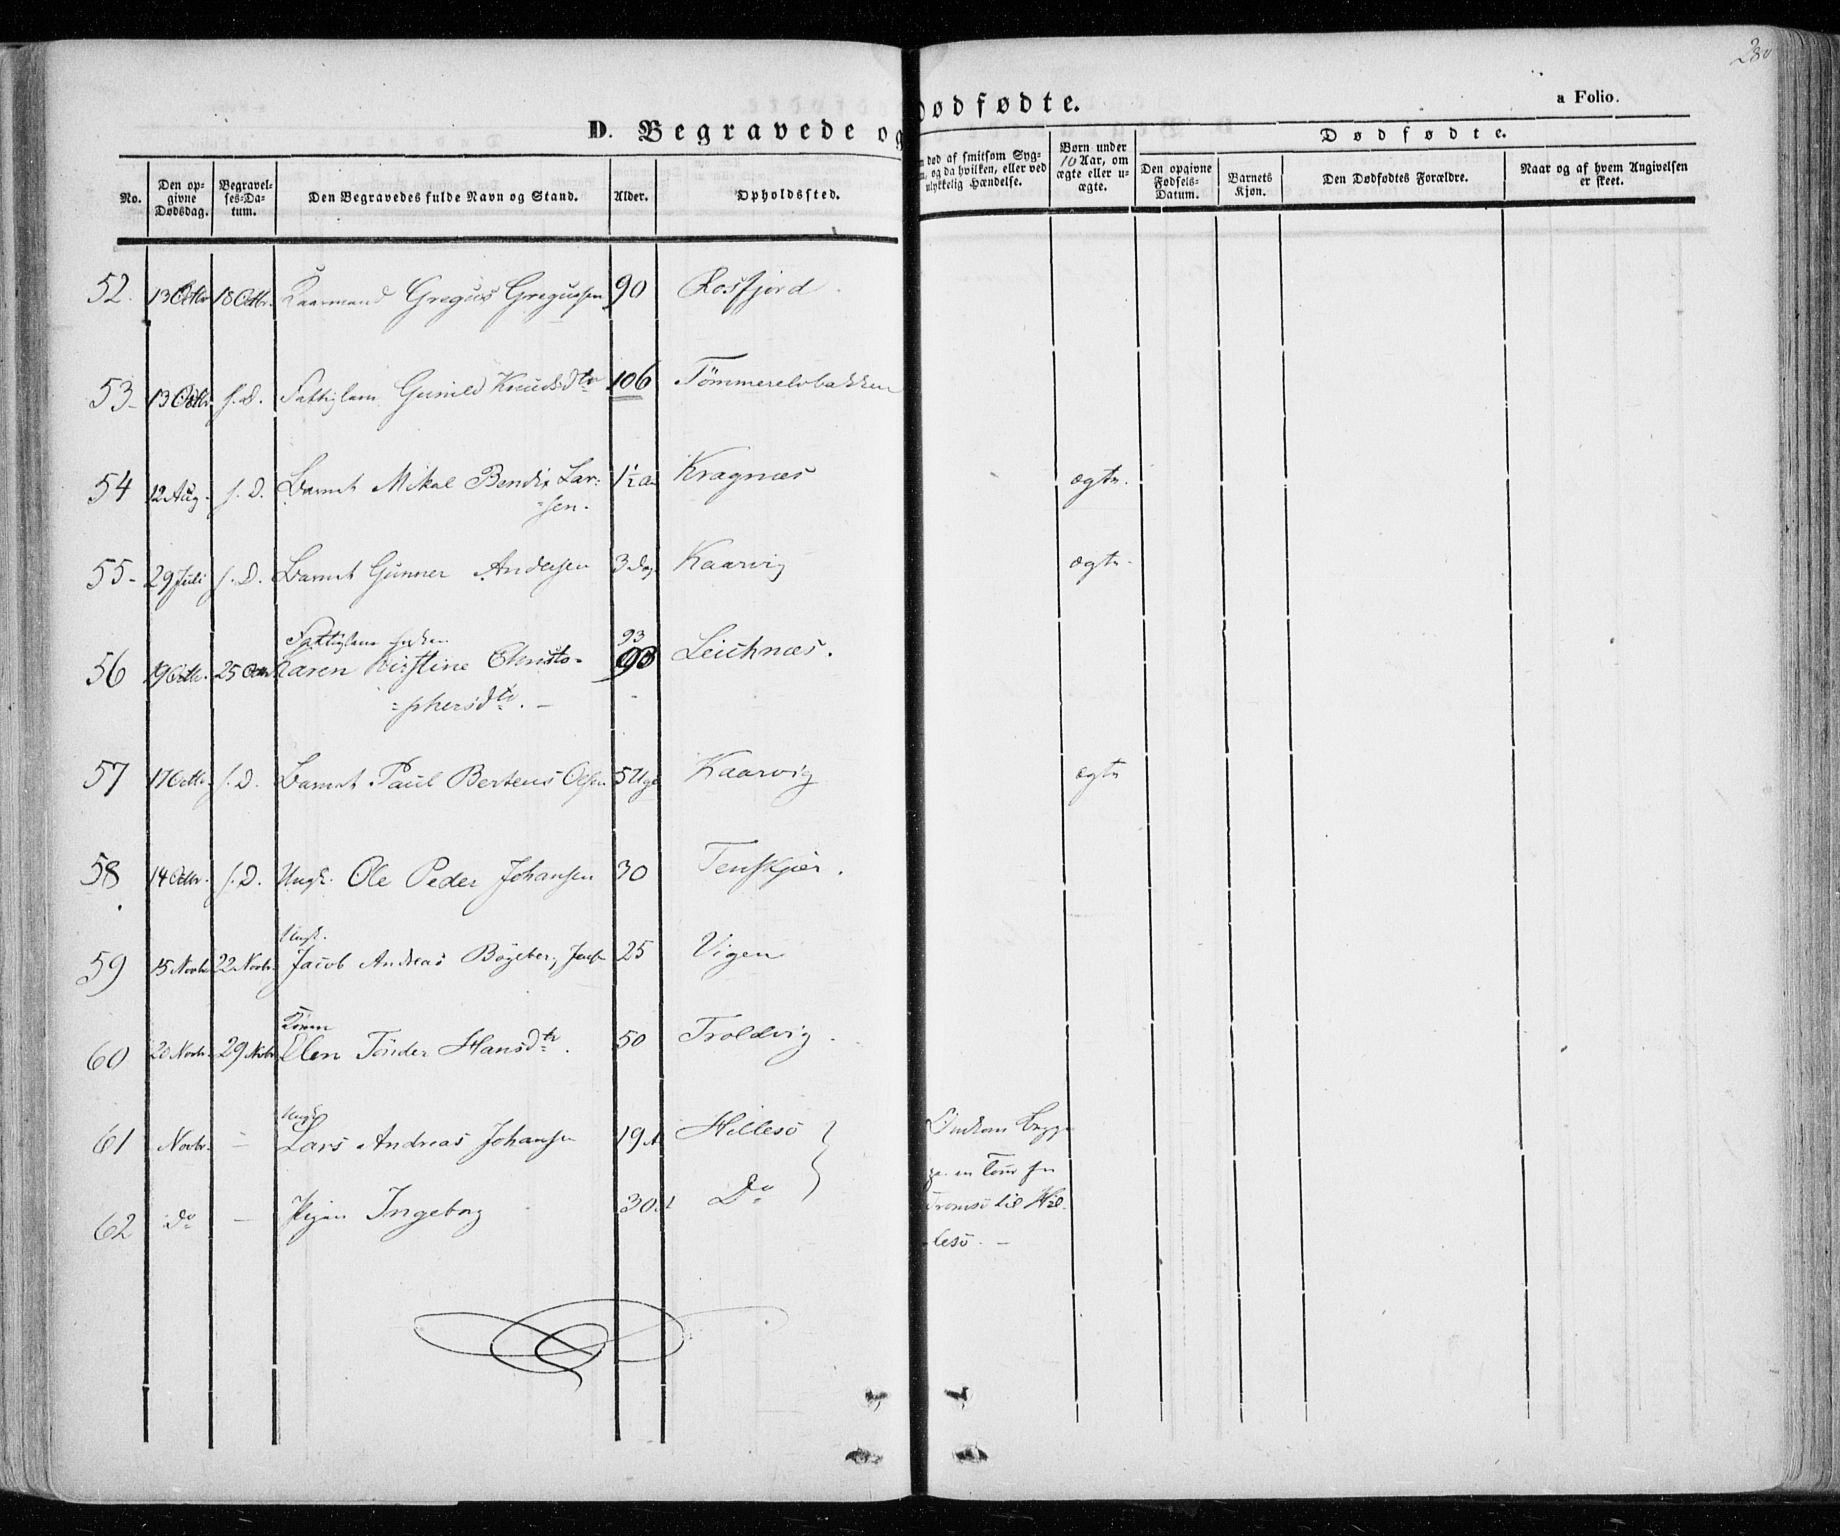 280
D. Begravede og
Dødfødte.
a Folio.
No.
Den op-
givne
Dødsdag.
Begravel-
ses-Da-
tum.
Den Begravedes fulde Navn og Stand.
Alder.
Opholdssted.
død af smitsom Syg-
og da hvilken, eller ved
ulykkelig Hændelse.
Børn under
10 Aar, om
ægte eller u-
ægte.
Dødfødte.
Den opgivne
Fødsels-
Datum.
Barnets
Kjøn.
Den Dødfødtes Forældre.
Naar og af hvem Angivelsen
er skeet.
52. 13 Octbr 18 Octbr. Kaarmand Gregus Gregussen 90 Rosfjord
53- 13 Octbr f. D. Fattiglem Gunild Knudsdtr 106 Tømmerelvbakken
54 12 Aug. f. D. Barnet Mikal Bendix Lar= 1½ Kragnæs ægte.
=sen.
55- 29 Juli f. D. Barnet Gunner Andersen 3 Dag Kaarvig ægte.
Fattiglem 93
56 19 Octbr. 25 Octbr Karen Kirstine Christo= 93 Leichnæs.
=phersdtr. -
57 17 Octbr. f. D. Barnet Paul Berteus Olsen 5 Uge Kaarvig ægte
58 14 Octbr. f. D. Ungk. Ole Peder Johansen 30 Tenskjær.
Ungk.
59 15 Novbr 22 Novbr. Jacob Andreas Bøgeberg 25 Vigen
Konen
60 20 Novbr. 29 Novbr Elen Tønder Hansdtr. 50 Troldvig.
Ungk
61 Novbr. - Lars Andreas Johansen 19 A Hillesø
Omkom
en Tour fra
62 do - Pigen Ingeborg 30 Do
Tromsø til Hil-
lesø. -